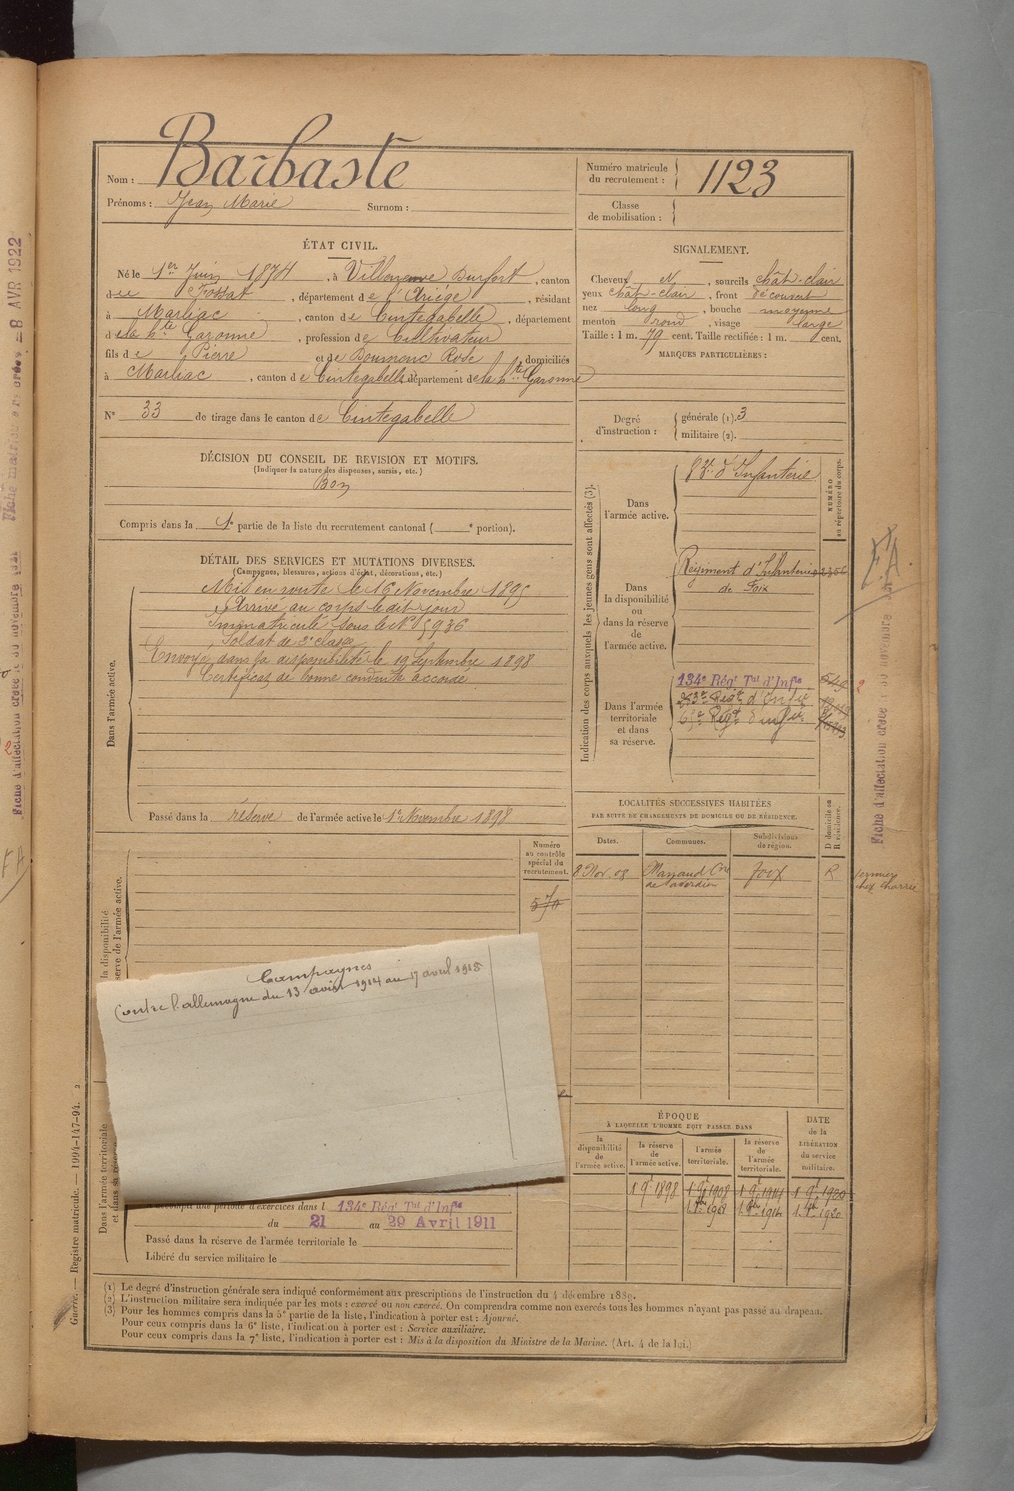 Nom : Barbaste
Prénoms : Jean Marie Surnom :
Numéro matricule du recrutement : 1123
Classe de mobilisation :
ÉTAT CIVIL.
Né le 1er Juin 1874, à Villeneuve Durfort, canton
du Fossat, département de l'Ariège, résidant
à Marliac, canton de Cintegabelle, département
de la hte Garonne, profession de Cultivateur
fils de Pierre et de Rose, domiciliés
à Marliac, canton de Cintegabelle, département de la hte Garonne
N° 33 de tirage dans le canton de Cintegabelle
SIGNALEMENT.
Cheveux N, sourcils chât-clair
yeux chât-clair, front découvert
nez long, bouche moyenne
menton rond, visage large
Taille : 1 m. 79 cent. Taille rectifiée : 1 m. cent.
MARQUES PARTICULIÈRES :
Degré d'instruction : générale (1). 3
militaire (2).
DÉCISION DU CONSEIL DE REVISION ET MOTIFS.
(Indiquer la nature des dispenses, sursis, etc.)
Bon
Compris dans la 1e partie de la liste du recrutement cantonal ( e portion).
DÉTAIL DES SERVICES ET MUTATIONS DIVERSES.
(Campagnes, blessures, actions d'éclat, décorations, etc.)
Dans l'armée active.
Mis en route le 16 Novembre 1895
Arrivé au corps le dit jour
Immatriculé sous le N° 5936
Soldat de 2e classe
Envoyé dans la disponibilité le 19 Septembre 1898
Certificat de bonne conduite accordé
Passé dans la réserve de l'armée active le 1er Novembre 1898
Indication des corps auxquels les jeunes gens sont affectés (3).
NUMÉRO au répertoire du corps.
Dans l'armée active.
83e d'Infanterie
Dans la disponibilité ou dans la réserve de l'armée active.
Régiment d'Infanterie
de Foix
Dans l'armée territoriale et dans sa réserve.
134e Régt Tal d'Infie
Régt d'Infie
Régt d'Infie
F.A.
LOCALITÉS SUCCESSIVES HABITÉES
PAR SUITE DE CHANGEMENTS DE DOMICILE OU DE RÉSIDENCE.
Dates. Communes. Subdivisions de région. D domicile ou R résidence.
8 Nov. 08 Foix R
fermier
chez Charrié
Numéro au contrôle spécial du recrutement.
la disponibilité
serve de l'armée active.
Campagnes
Contre l'allemagne du 13 août 1914 au 17 avril 1915
Dans l'armée territoriale
et dans sa rés
accompli une période d'exercices dans l 134e Régt Tal d'Infie
du 21 au 29 Avril 1911
Passé dans la réserve de l'armée territoriale le
Libéré du service militaire le
ÉPOQUE
À LAQUELLE L'HOMME DOIT PASSER DANS
la disponibilité de l'armée active. la réserve de l'armée active. l'armée territoriale. la réserve de l'armée territoriale.
DATE de la LIBÉRATION du service militaire.
1 9e 1898 1 9e 1908 1 9e 1914 1 9e 1920
(1) Le degré d'instruction générale sera indiqué conformément aux prescriptions de l'instruction du 4 décembre 1889.
(2) L'instruction militaire sera indiquée par les mots : exercé ou non exercé. On comprendra comme non exercés tous les hommes n'ayant pas passé au drapeau.
(3) Pour les hommes compris dans la 5e partie de la liste, l'indication à porter est : Ajourné.
Pour ceux compris dans la 6e liste, l'indication à porter est : Service auxiliaire.
Pour ceux compris dans la 7e liste, l'indication à porter est : Mis à la disposition du Ministre de la Marine. (Art. 4 de la loi.)
Guerre. — Registre matricule. — 1994-147-94.
8 AVR 1922